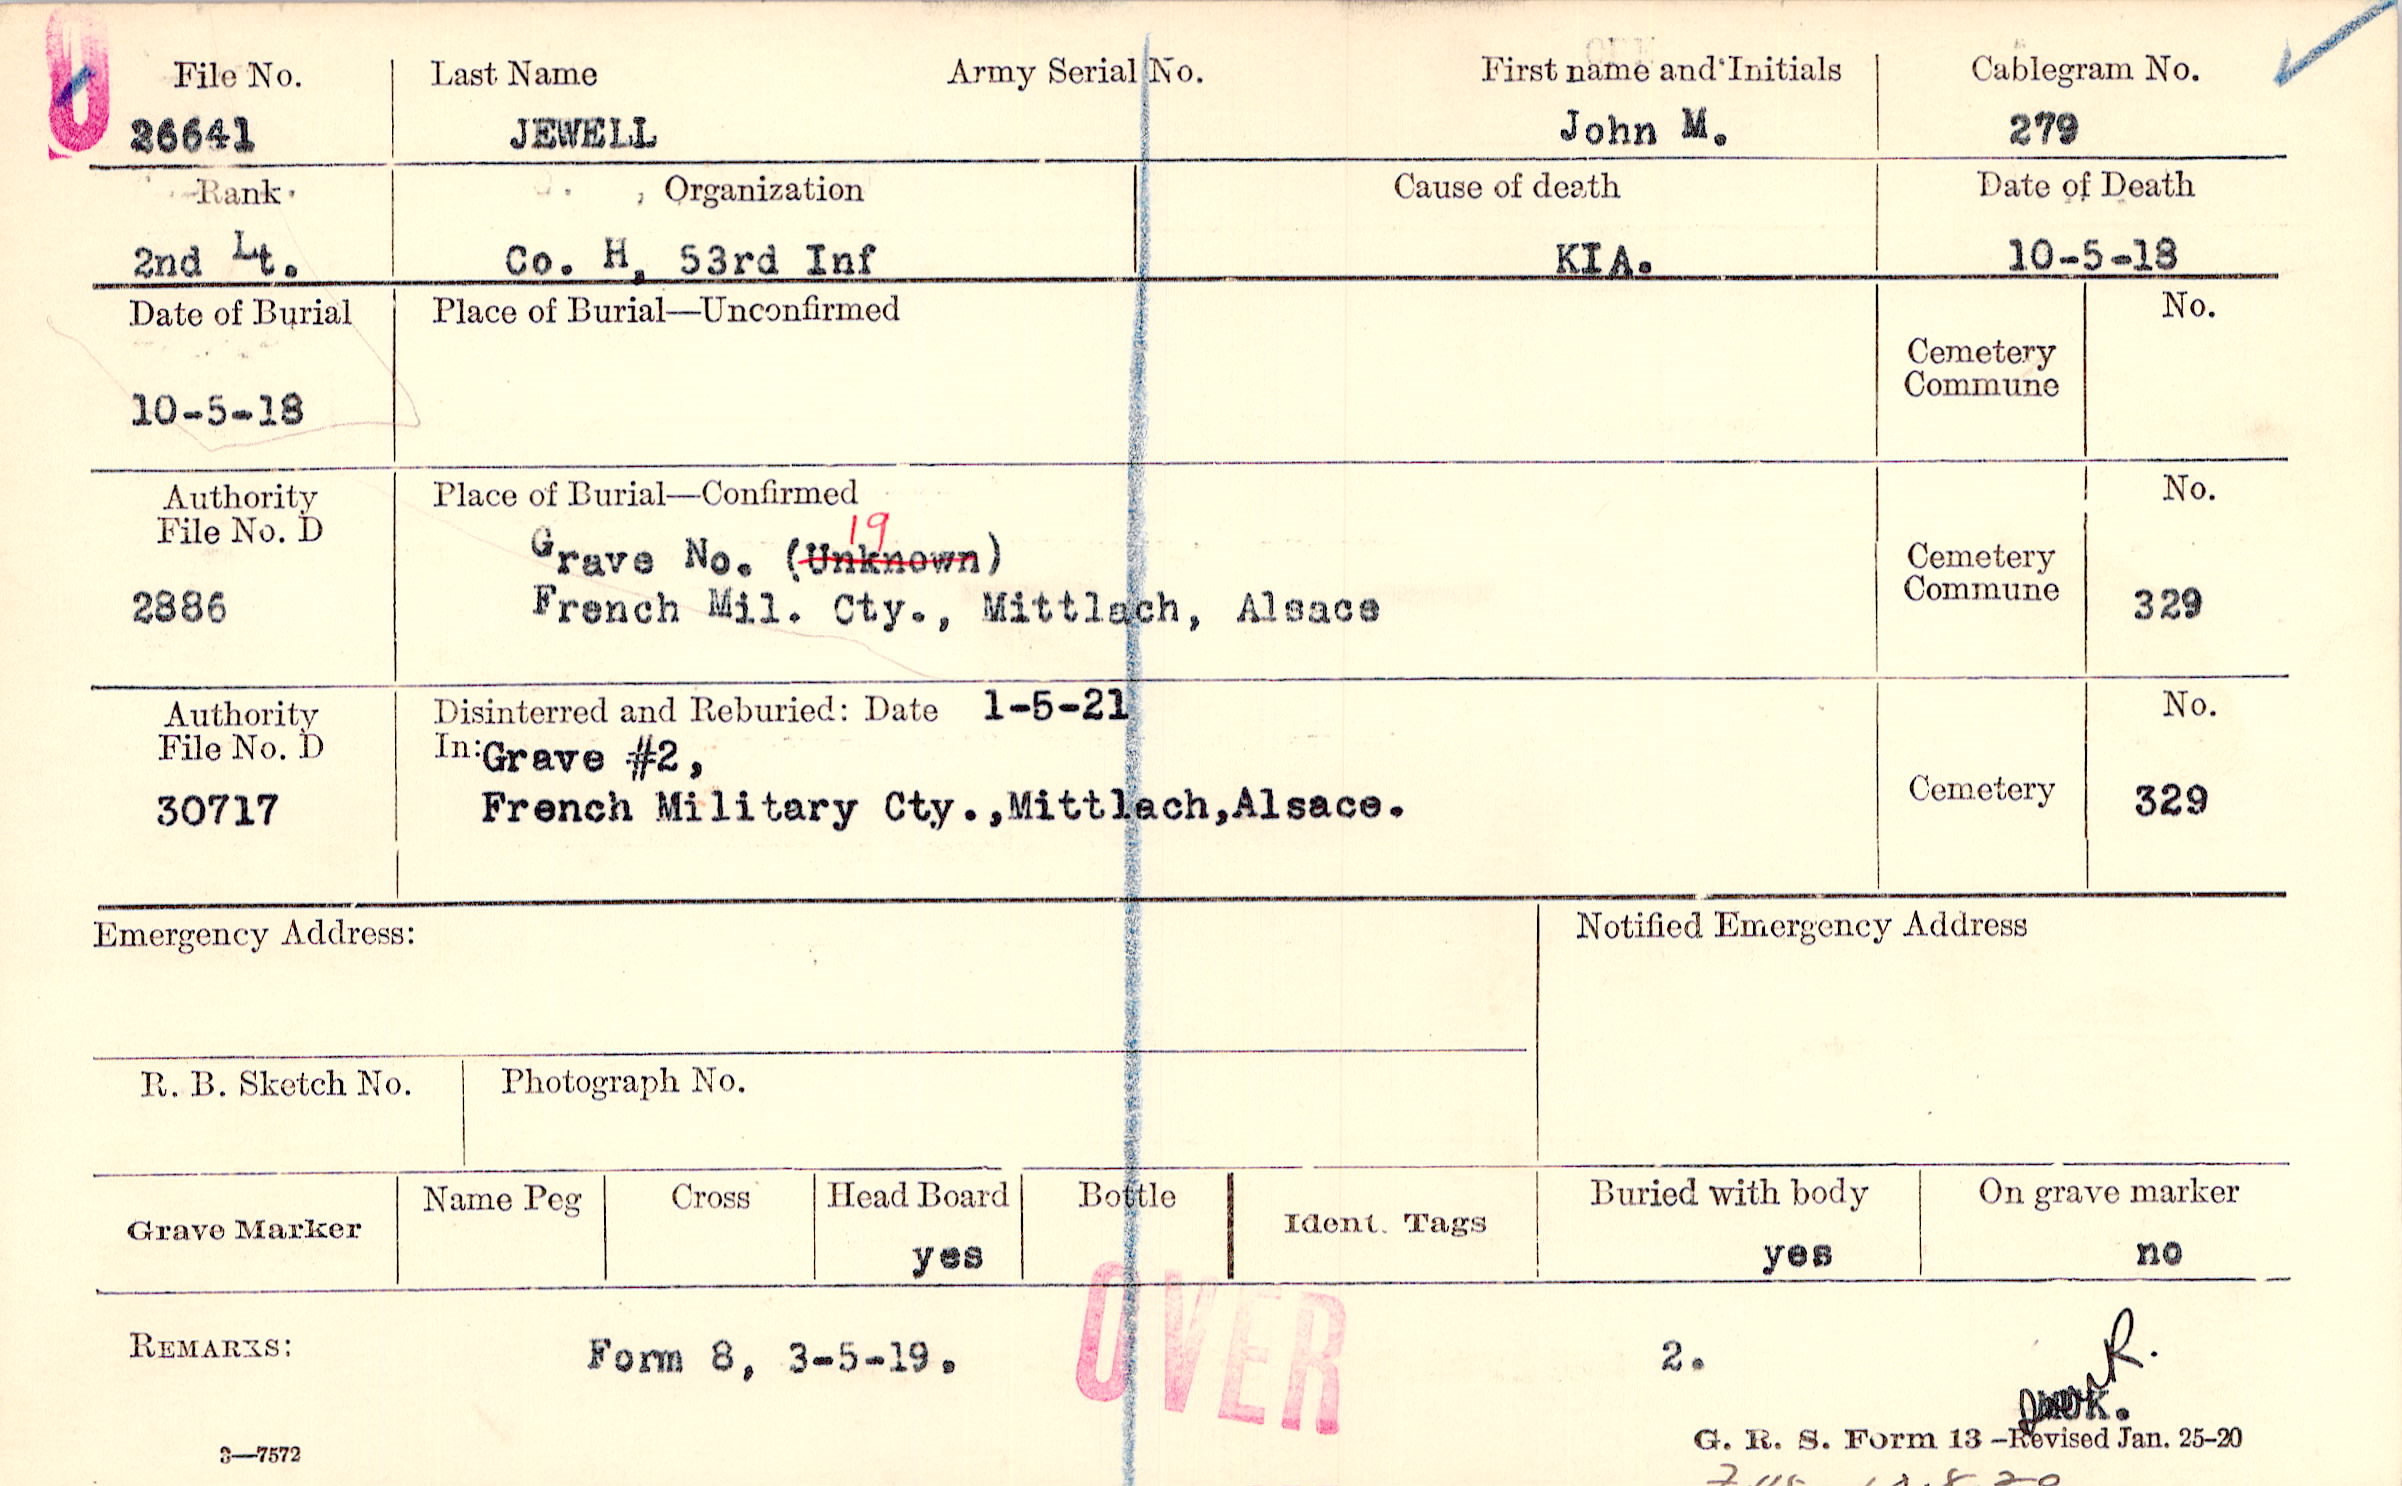 File No.
Last Name
Army Serial No.
First name and Initials
Cablegram No.
26641
JEWELL
John M.
279
Rank
Organization
Cause of death
Date of Death
2nd Lt.
Co. H, 53rd Inf
KIA.
10-5-18
Date of Burial
Place of Burial—Unconfirmed
Cemetery
Commune
No.
10-5-18
Authority
File No. D
2886
Place of Burial—Confirmed
19
Grave No. (Unknown)
French Mil. Cty., Mittlach, Alsace
Cemetery
Commune
No.
329
Authority
File No. D
30717
Disinterred and Reburied: Date 1-5-21
In: Grave #2,
French Military Cty.,Mittlach,Alsace.
Cemetery
No.
329
Emergency Address:
Notified Emergency Address
R. B. Sketch No.
Photograph No.
Grave Marker
Name Peg
Cross
Head Board
yes
Bottle
Ident. Tags
Buried with body
yes
On grave marker
no
REMARKS:
Form 8, 3-5-19.
2.
R.
OVER
3—7572
G. R. S. Form 13—Revised Jan. 25-20